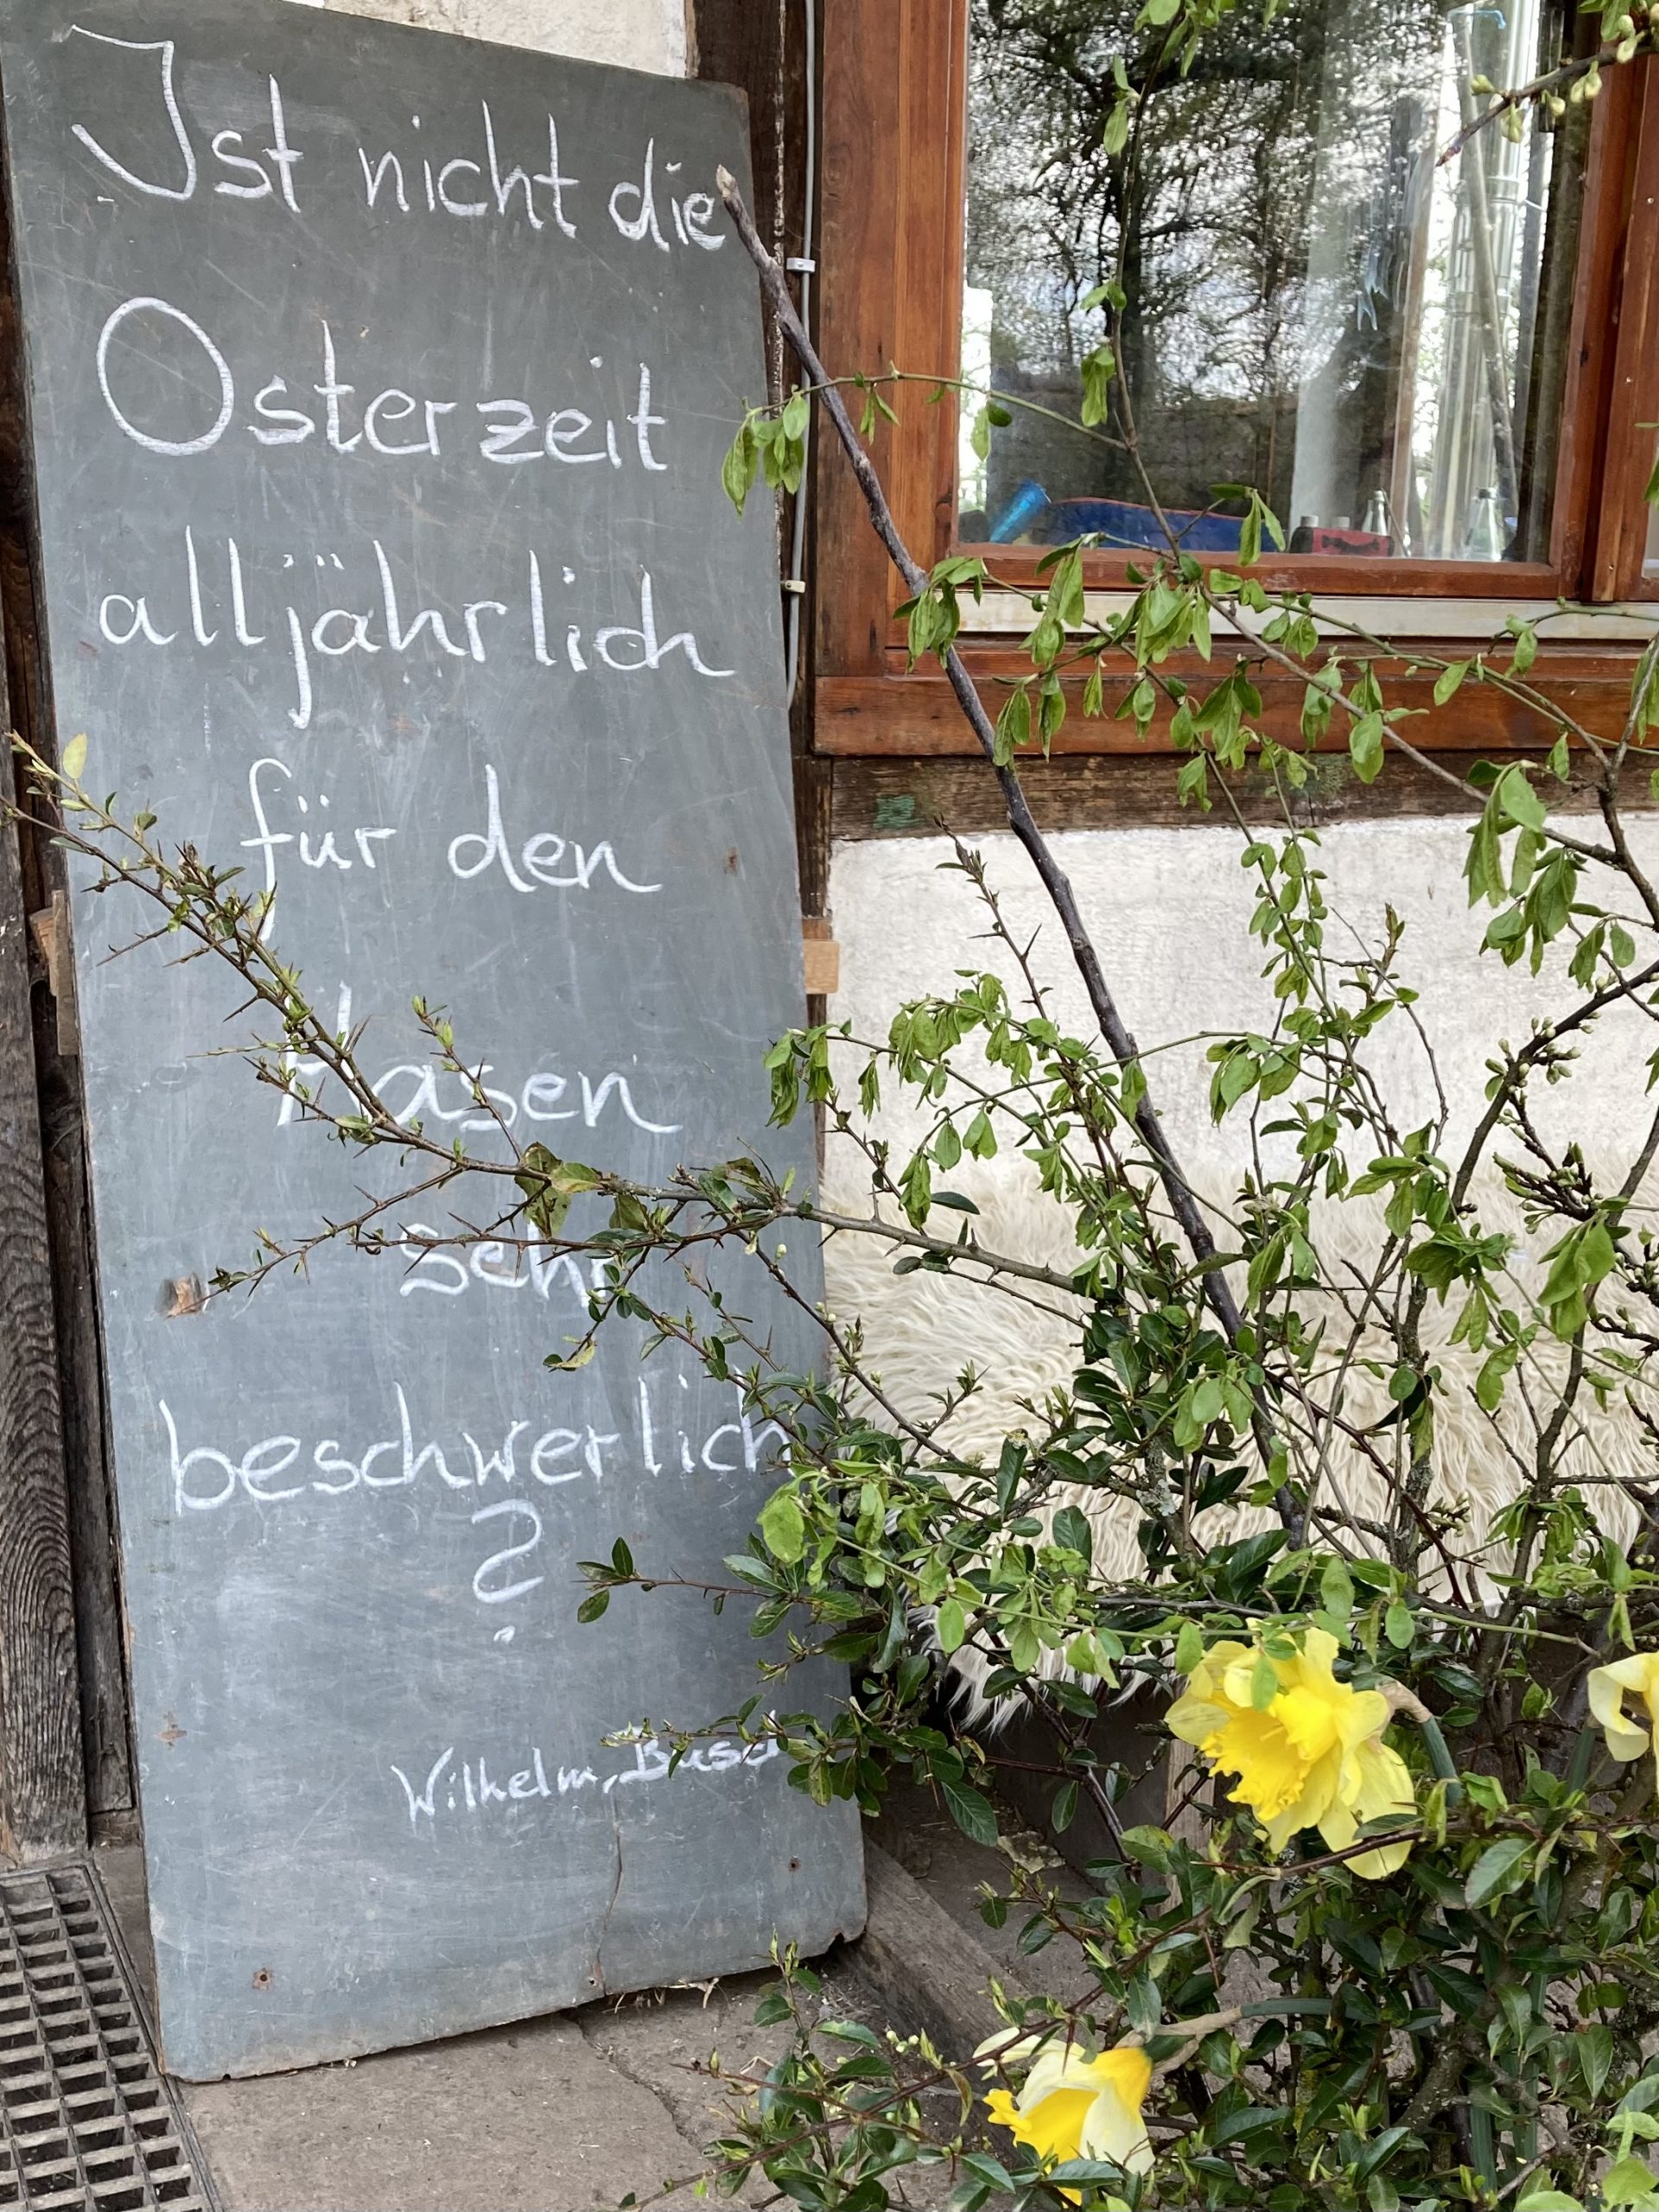 Ist nicht die
Osterzeit
alljährlich
für den
Hasen
sehr
beschwerlich
?
Wilhelm Busch